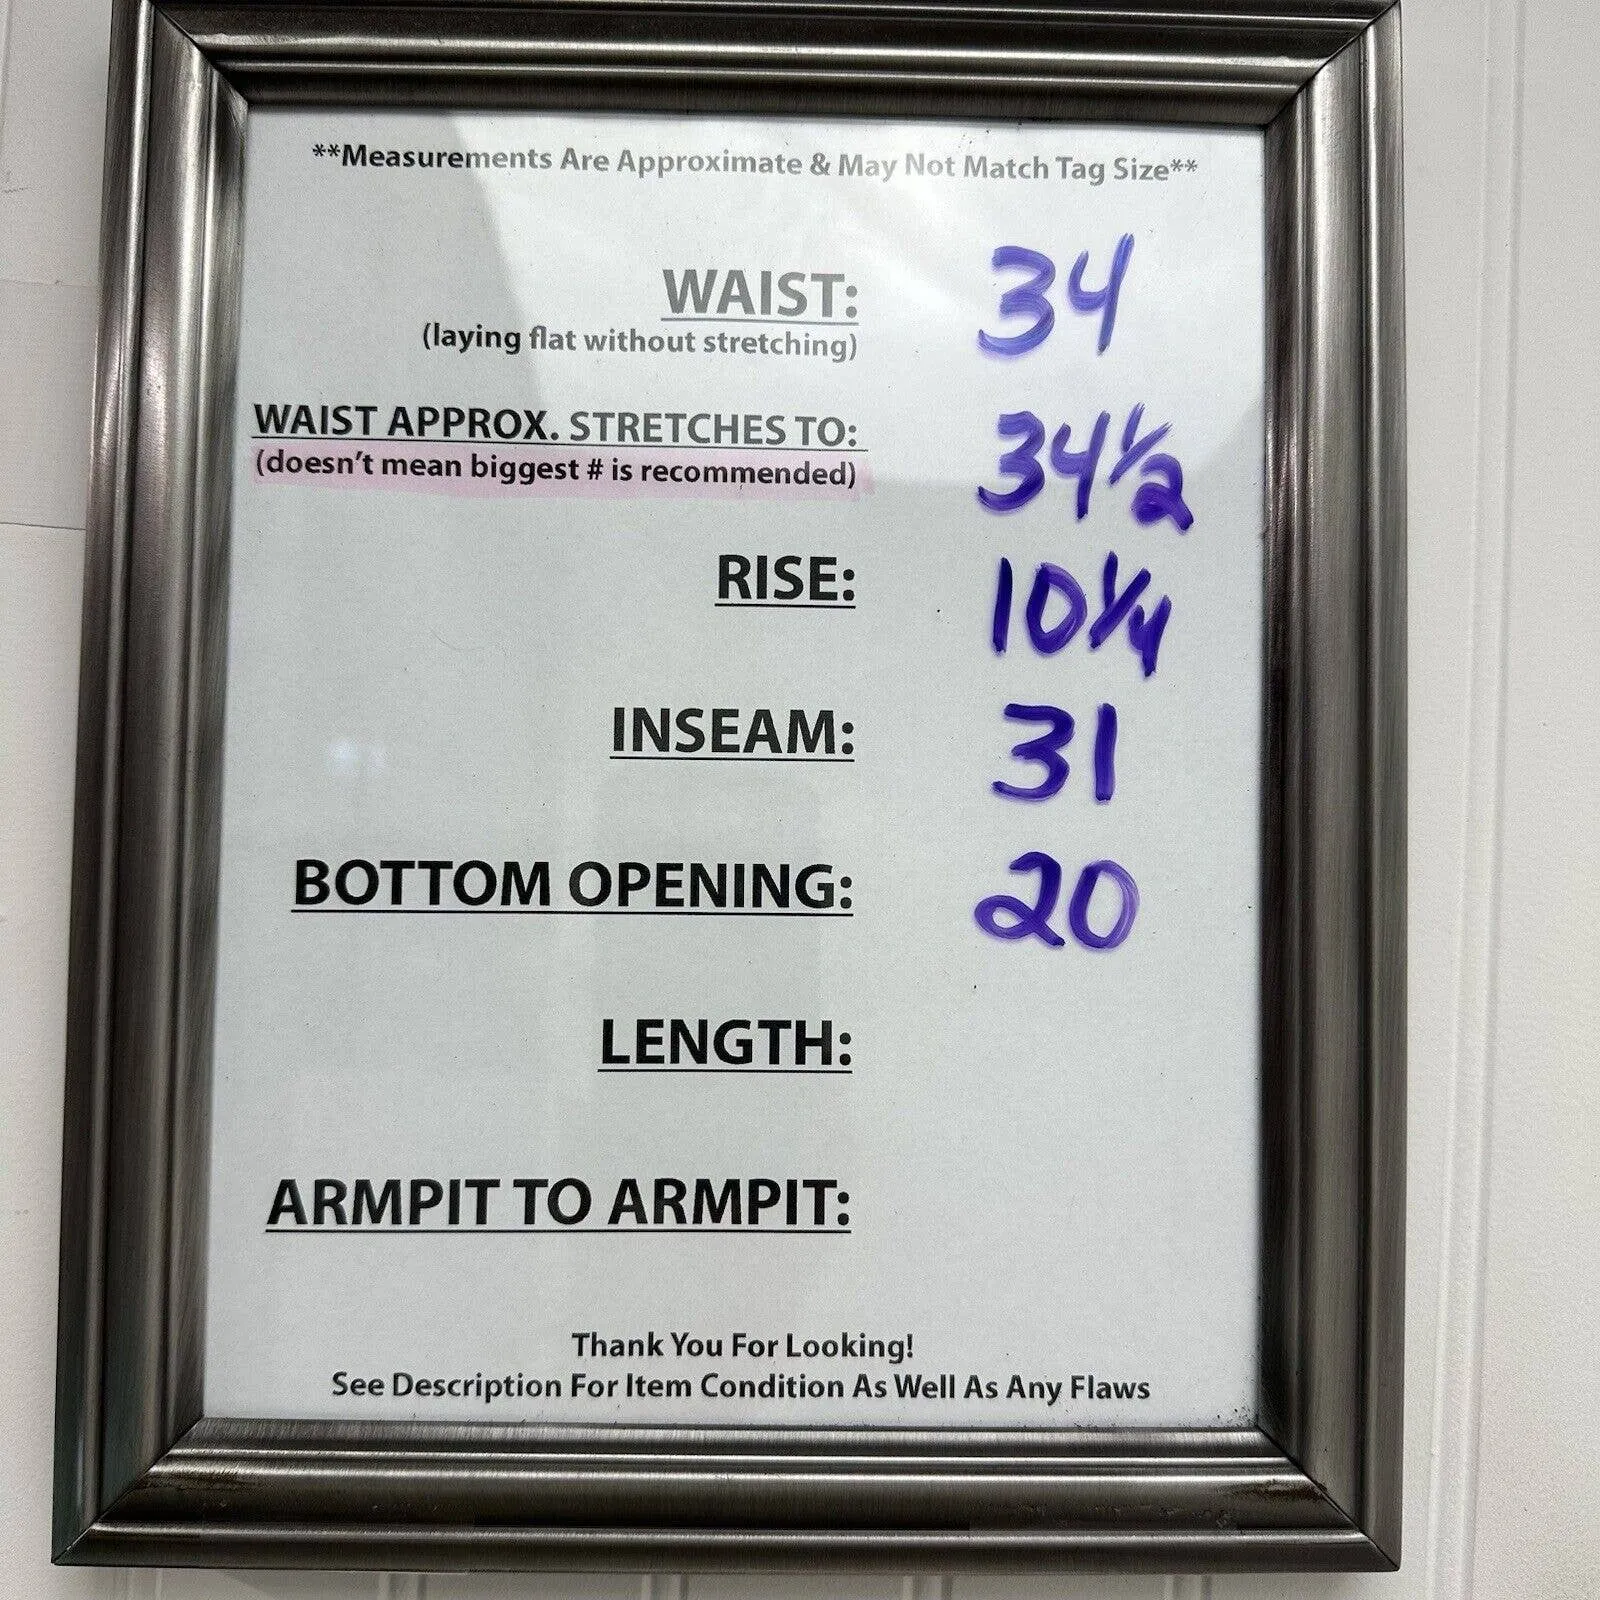 **Measurements Are Approximate & May Not Match Tag Size**
WAIST: 34
(laying flat without stretching)
WAIST APPROX. STRETCHES TO: 34 1/2
(doesn't mean biggest # is recommended)
RISE: 10 1/4
INSEAM: 31
BOTTOM OPENING: 20
LENGTH:
ARMPIT TO ARMPIT:
Thank You For Looking!
See Description For Item Condition As Well As Any Flaws